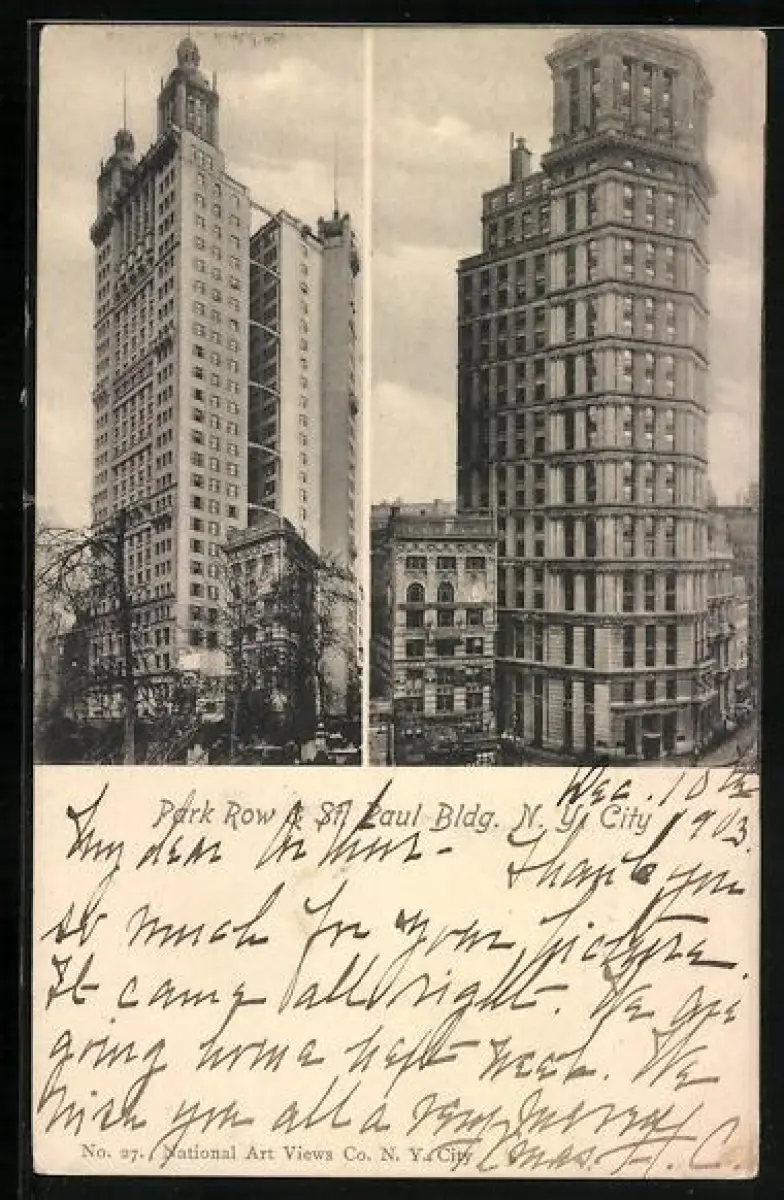 Dec. 10th
Park Row & St. Paul Bldg. N. Y. City
1903.
My dear - Thank you
so much for your picture.
It came all right. We are
going home next week. We
wish you all a very merry
No. 27. National Art Views Co. N. Y. City
Xmas. H. C.